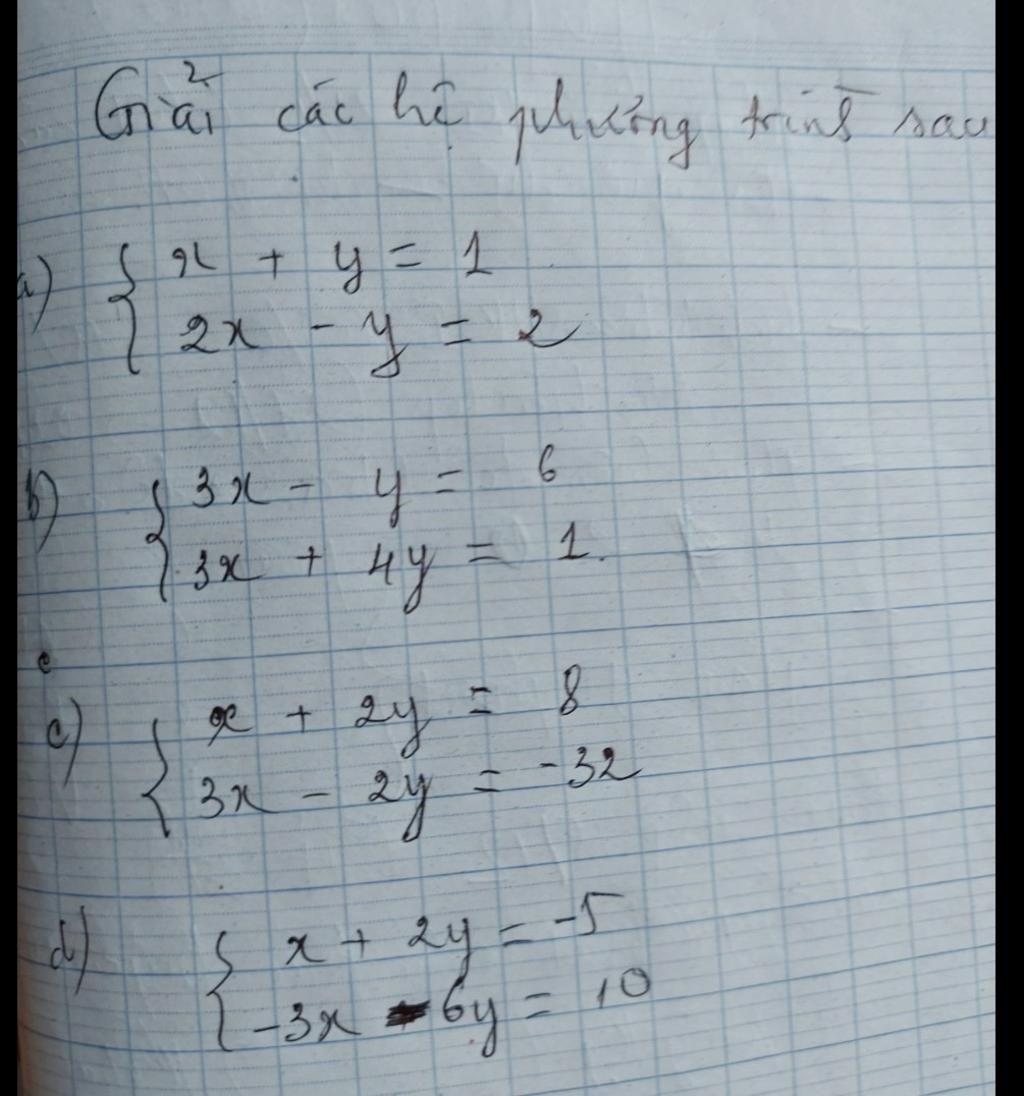 Giải các hệ phương trình sau
a) { x + y = 1
2x - y = 2
b) { 3x - y = 6
3x + 4y = 1.
c) { x + 2y = 8
3x - 2y = -32
d) { x + 2y = -5
-3x - 6y = 10